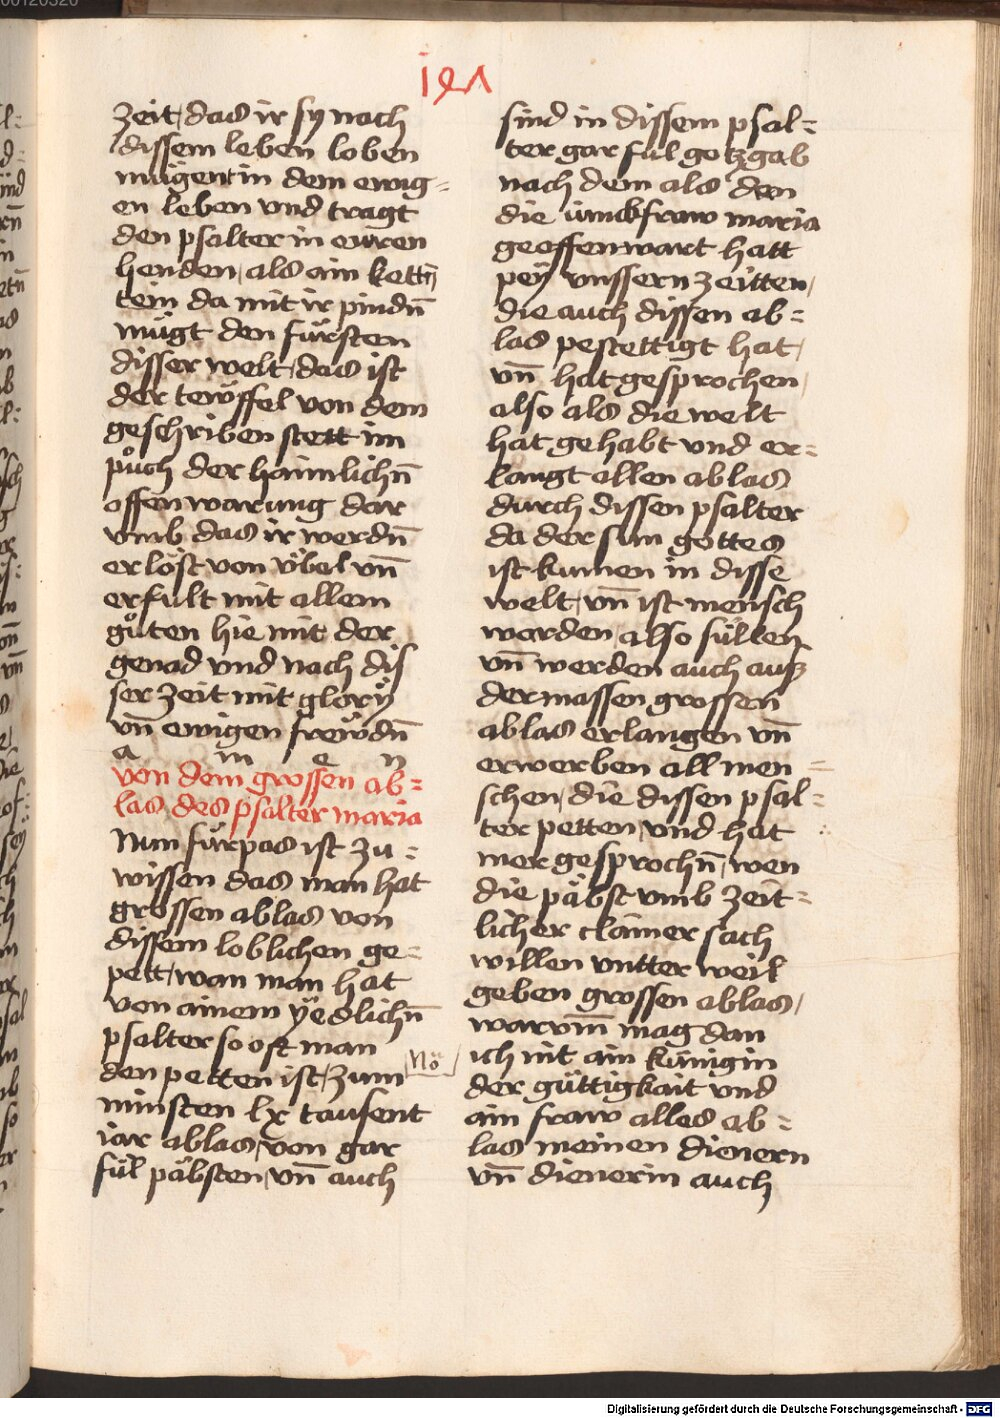 zeit, das ir sy nach
dissem leben loben
mügent in dem ewig=
en leben vnd tragt
den psalter in euren
henden, als ain kett
tein da mit ir pindn̄
mügt den fürsten
disser welt, das ist
der tewffel von dem
geschriben stett im
půch der haimlichn̄
offenwarung dar
vmb das ir werdn̄
erlöst von vbel vn̄
erfult mit allem
gůten hie mit der
genad vnd nach dis
ser zeit mit glory
vn̄ ewigen frewdn̄
a m e n
von dem grossen ab=
las des psalter maria
Nun fürpas ist zu=
wissen das man hat
grossen ablas von
dissem loblichen ge=
pett, wan man hat
von ainem yedlichn̄
psalter so oft man
den petten ist, zum
minsten lx tausent
iar ablas, von gar
fül päbsten, vn̄ auch
sind in dissem psal=
ter gar ful gotzgab
nach dem als den
die iunckfraw maria
geoffenwart hatt
pey vnssern zeitten,
die auch dissen ab=
las pestettigt hat,
vn̄ hat gesprochen,
also als die welt
hat gehabt vnd er=
langt allen ablas
durch dissen psalter
da der sun gottes
ist kumen in disse
welt, vn̄ ist mensch
worden, also süllen
vn̄ werden auch auß
dermassen grossen
ablas erlangen vn̄
erwerben all men=
schen, die dissen psal=
ter petten, vnd hat
mer gesprochn̄, wen
die päbst vmb zeit=
licher clainer sach
willen vntter weil
geben grossen ablas,
warvm̄ mag dan
No
ich nit ain künigin
der güttigkait vnd
ain fraw alles ab=
las meinen dienern
vn̄ dienerin auch
Digitalisierung gefördert durch die Deutsche Forschungsgemeinschaft - DFG